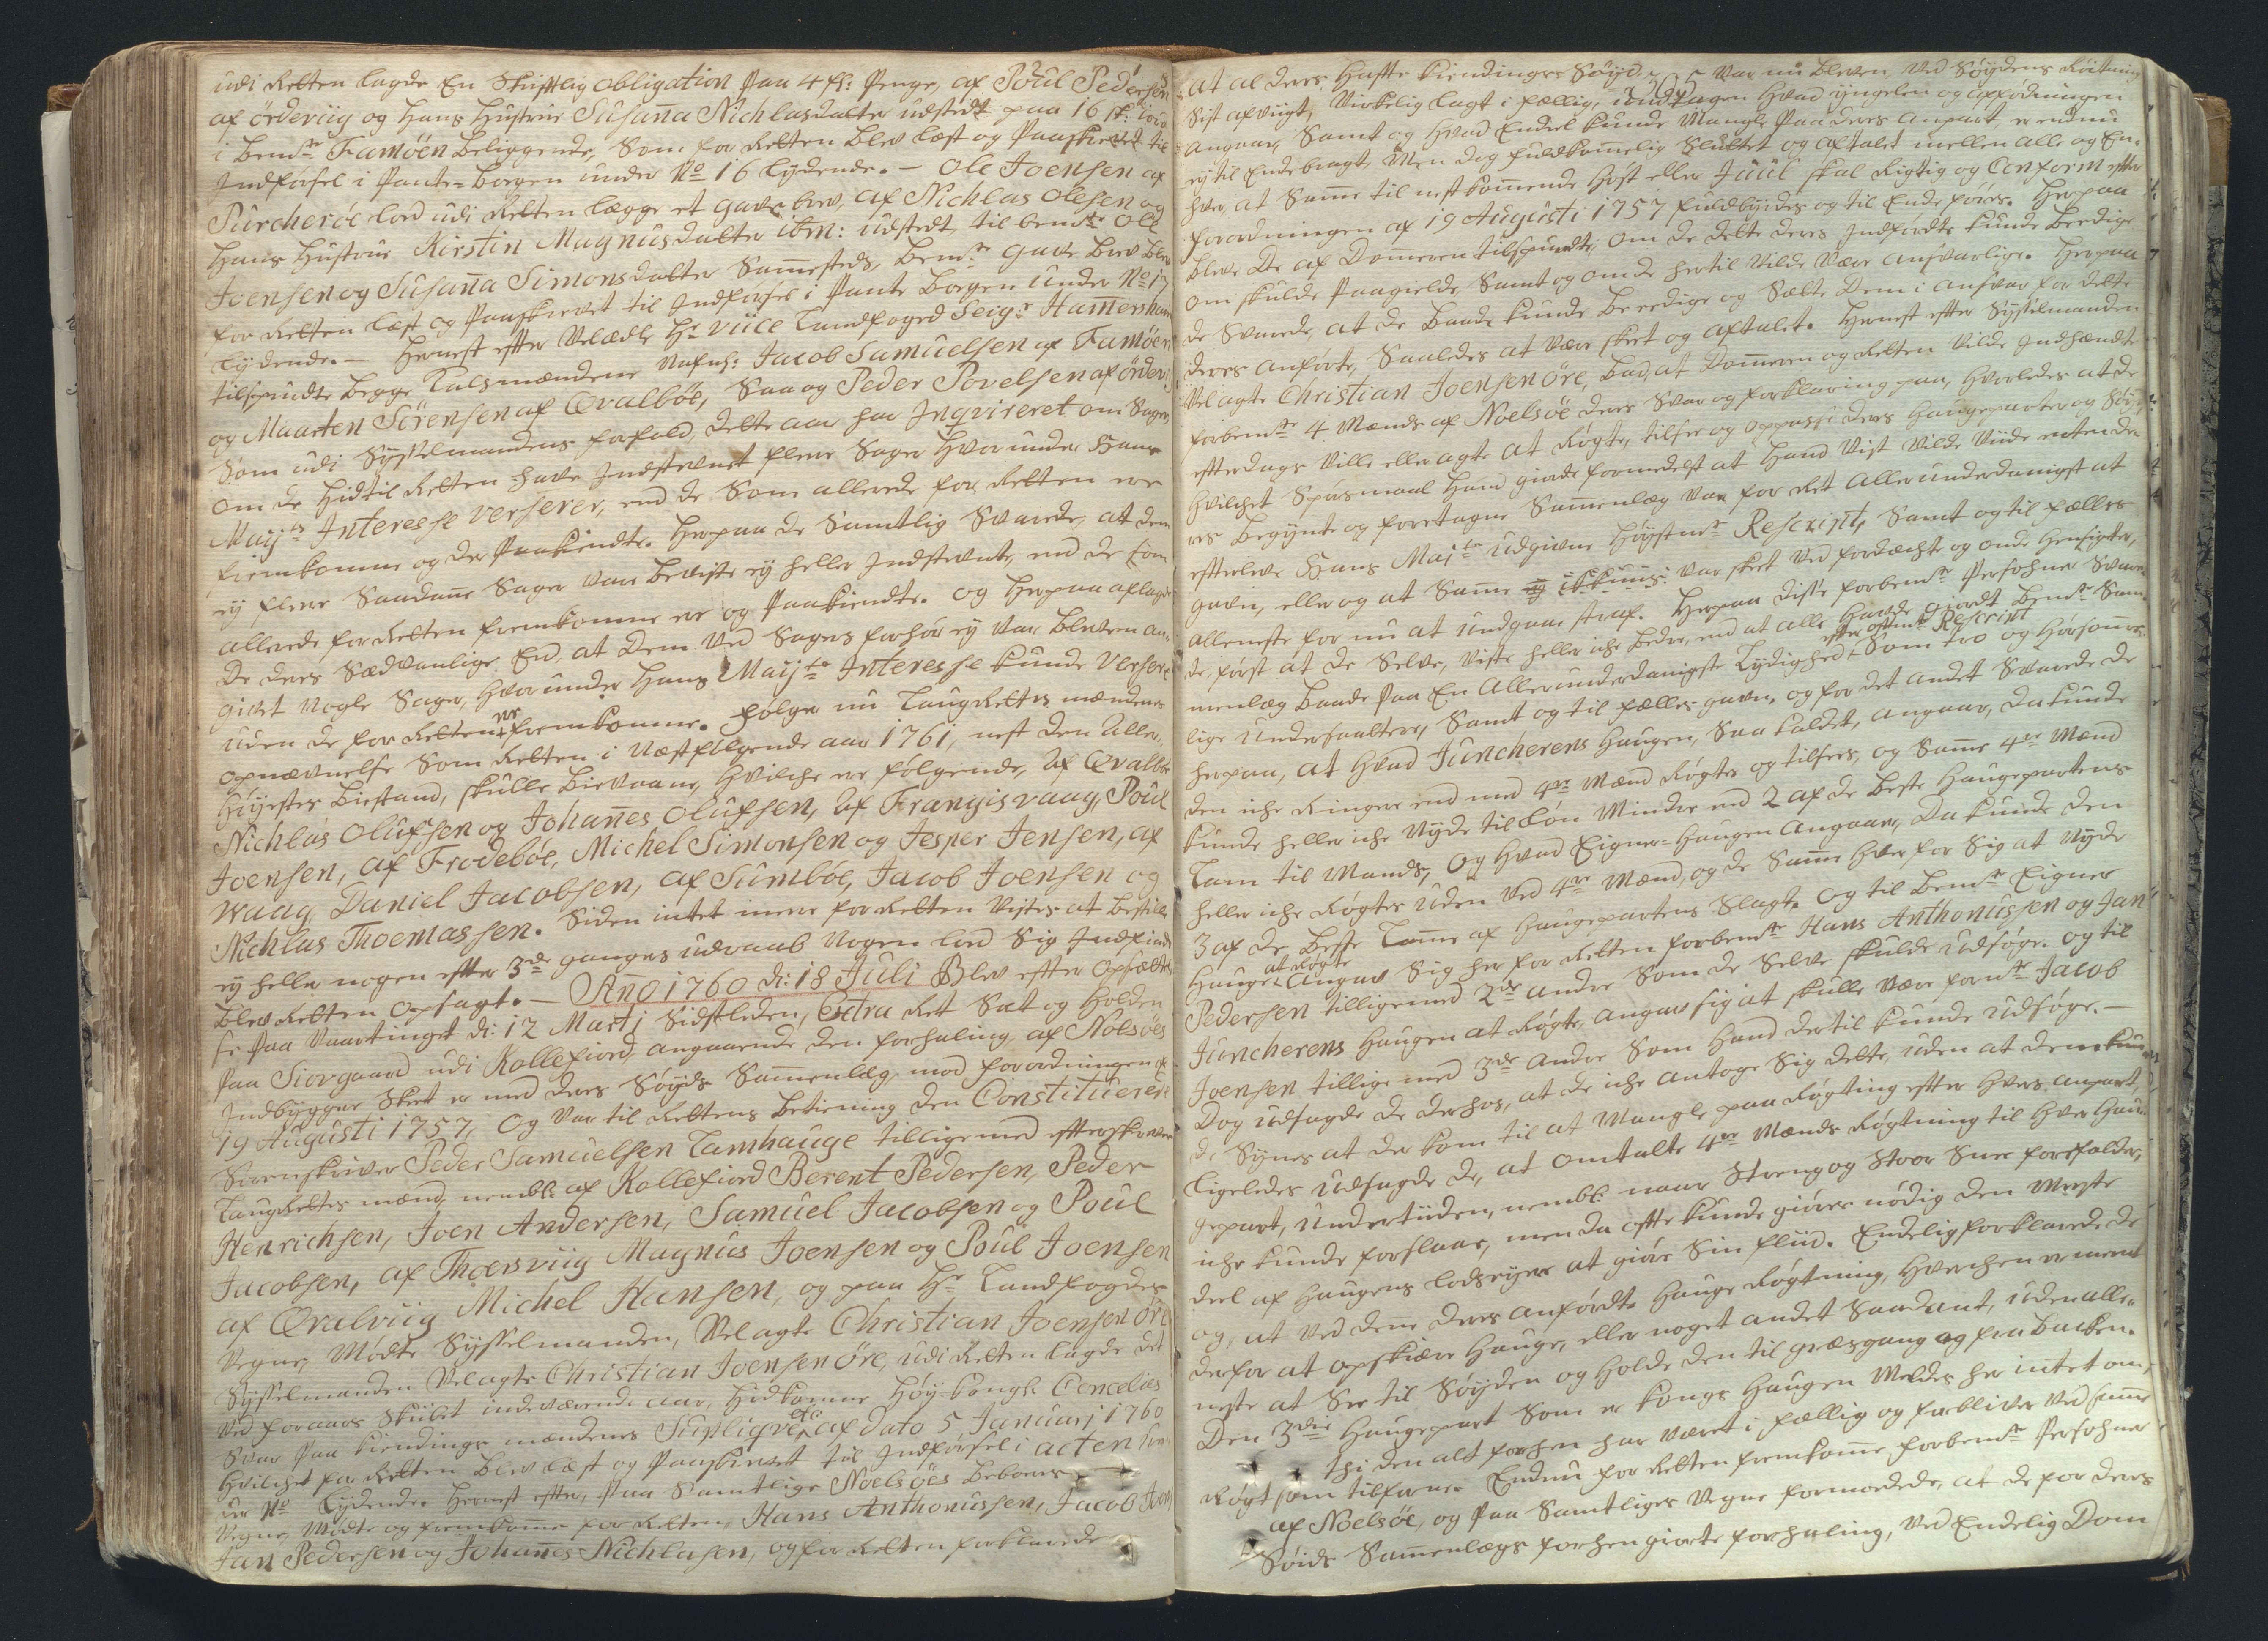 udi Retten lagde En Skriftlig obligation paa 4 fl: Penge, af Poul Pedersen
af Ördeviig og Hans Hustrue Susanna Nichlasdatter udstedt paa 16 sk: Jord
i bemte Famöen beliggende, Som for Retten blev læst og Paaskrevet til
Indförsel i Pante-Bogen under No 16 lydende. - Ole Joensen af
Purcheröe lod udi Retten lægge et Gave brev, af Nichlas Olesen og
Hans Hustrue Kirstin Magnusdatter ibm: udstedt, til bemte Ole
Joensen og Susanna Simonsdatter Sammesteds, bemte Gave Brev blev
for Retten læst og Paaskrevet til Indförsel i Pante Bogen under No 17
lydende. - Hernest efter Velædle Hr Viice Landfoged Seigr Hammershaimb
tilspurdte begge Talsmændene Nafnl: Jacob Samuelsen af Famöen
og Maarten Sörensen af Qvalböe, Saa og Peder Povelsen af örder,
Som udi Sysselmandens forfald, dette aar har Inqvireret om Sager,
om de hidtil Retten have Indstevnet flere Sager Hvorunder Hans
Mayts Interesse verserer, end de Som allerede for Retten ere
fremkomne og der Paakiendte. Herpaa de Samtlig Svarede, at dem
ey flere Saadanne Sager vare beviste ey heller Indstevnte, end de som
allerede for Retten fremkomne ere og Paakiendte. og Herpaa aflagde
de deres Sædvanlige Eed, at dem ved Sagers forhör ey var bleven an-
givet nogle Sager, Hvorunder Hans Mayts Interesse kunde Versere
uden de for Retten ere fremkomne. Fölger nu LaugRettes mændenes
opnævnelse Som Retten i Næstfölgende aar 1761, nest den Aller-
höyestes biestand, skulle bievaane, Hvilche ere fölgende, Af Qvalböe
Nichlas Olufsen og Johannes Olufsen, Af Frangisvaag, Poul
Joensen, af Frodeböe, Michel Simonsen og Jesper Jensen, af
Waag, Daniel Jacobsen, af Sumböe, Jacob Joensen og
Nichlas Thoemassen. Siden intet mere for Retten vistes at bestille
ey heller nogen efter 3de ganges udraab Nogen lod Sig Indfinde
blev Retten opsagt. - Anno 1760 d: 18 Juli Blev efter opsættel-
se paa Vaartinget d: 12 Martj Sidstleden, Extra Ret Sat og Holden
paa Siovgaard udi Kollefiord, angaaende den forhaling af Nolsöes
Indbyggere Skeet er med deres Söyds Sammenlæg, mod forordningen af
19 Augusti 1757, Og var til Rettens betiening den Constituerede
Sorenskriver Peder Samuelsen Lamhauge tilligemed efterskrevne
LaugRettes mænd, nembl: af Kollefiord Berent Pedersen, Peder
Henrichsen, Joen Andersen, Samuel Jacobsen og Poul
Jacobsen, af Thoersviig Magnus Joensen og Poul Joensen
af Qvalviig Michel Hansen, og paa Hr Landfogdens
Vegne, Mödte Sysselmanden, Velagte Christian Joensen Öre
Sysselmanden Velagte Christian Joensen Öre, udi Retten lagde det
ved foraars Skibet indeværende aar, hidkomne Höy-Kongl: Cancelies
Svar paa Kiendings mændenes Supliqve etc: af Dato 5 Januarj 1760
Hvilchet for Retten blev læst og Paaskrevet til Indförsel i acten sun-
der No lydende. Hernest efter, Paa Samtlige Noelsöes beboeres
Vegne, Mödte og fremkomme for Retten, Hans Anthonussen, Jacob Joen,
Jan Pedersen og Johannes Nichlasen, og for Retten forklarede
at al deres Haffte Kiendings-Söyd var nu bleven, ved Söydens Röitning
Sist afviigt, Virkelig lagt i fællig, undtagen Hvad yngelen og opfödningen
angaar, Samt og Hvad Endeel kunde Mangle paa deres anpart er endnu
ey til Ende bragt, Men dog fuldkommelig Sluttet og aftalet mellem alle og En-
hver, at Samme til nestkommende Höst eller Juul skal Rigtig og Conform efter
forordningen af 19 Augusti 1757 fuldbyrdes og til Ende föres. Herpaa
bleve de af Dommeren tilspurdte, om de dette deres Indförde kunde beedige
om skulde paagielde, Samt og om de hertil vilde være ansvarlige. Herpaa
de Svarede, at de baade kunde beedige og Sætte dem i ansvar for dette
deres anförte, Saaledes at være skeet og aftalet. Hernest efter Sysselmanden
Velagte Christian Joensen öre, bad, at Dommeren og Retten vilde Indhændte
forbemte 4 Mænds af Noelsöe deres Svar og forklaring paa, Hvorledes at de
efterdags ville eller agte at Rögte, tilsee og oppasse deres Haugeparter og Söyd,
Hvilchet Spörsmaal Hand giorde formedelst at Hand Vist vilde Viide enten de-
res begynte og foretagne Sammenlæg var for Ret Allerunderdanigst at
efterleve Hans Majts udgivne Höystne Rescript, Samt og til fælles
gavn, eller og at Samme var skeet ved fordæchte og onde Hensigter,
alleneste for nu at undgaae straf. Herpaa disse forbemte Personer Svare-
de, först at de Selve, Viste heller iche bedre, end at alle Havde giordt bemte Sam-
menlæg baade paa En Allerunderdanigste Lydighed efter oftnte Rescript Som troe og Hörsomme-
lige Undersaatter, Samt og til fælles gavn, og for det andet Svarede de
herpaa, at Hvad Juncherens Haugen, Saa kaldet, angaar, da kunde
den iche Ringere end med 4re Mænd Rögtes og tilsees, og Samme 4re Mænd
kunde heller iche Nyde til Lön Mindre end 2 af de beste Haugepartens
Lam til Mands, Og Hvad Eigner-Haugen angaar, da kunde den
heller iche Rögtes uden ved 4re Mænd, og de Samme Hver for Sig at Nyde
3 af de beste Lamme af Haugepartens Slagt. Og til bemte Eigner
Hauge at Rögte angav Sig her for Retten forbemte Hans Anthonussen og Jan
Pedersen tilligemed 2de andre Som de Selve skulde udsöge. og til
Juncherens Haugen at Rögte, angav sig at skulle være formte Jacob
Joensen tillige med 3de andre Som Hand dertil kunde udsöge. -
Dog udsagde de derhos, at de iche antoge Sig dette, uden at dem kun-
de Synes at der kom til at Mangle paa Rögting efter Hvers anpart,
ligeledes udsagde de, at omtalte 4re Mænds Rögtning til Hver Hau-
gepart, undertiiden, nembl: naar Streng og Stoer Snee forefalder,
iche kunde forslaae, men da ofte kunde giöres nödig den Meeste
deel af Haugens lodseyere at giöre Sin fliid. Endelig forklarede de
og, at ved denne deres anfördte Hauge Rögtning, Hverchen er meent
derfor at opskiære Hauge, eller noget andet Saadant, uden alle-
neste at See til Söyden og Holde den til græsgang og fra backen.
Den 3die Haugepart Som er Kongs Haugen Meldes her intet om,
thi den alt forhen har været i fællig og forbliver ved samme
Rögt som tilforne. Endnu for Retten fremkomme forbemte Personer
af Noelsöe, og paa Samtliges Vegne formoedede, at de for deres
Söids Sammenlægs forhen giorte forhaling, ved Endelig Dom